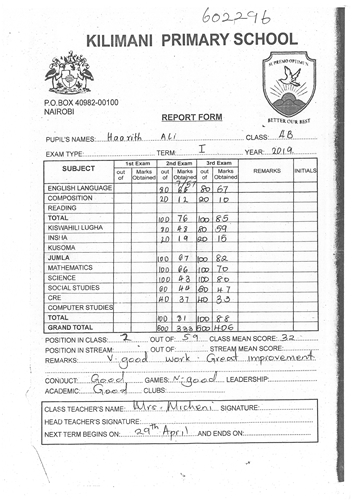 602296
KILIMANI PRIMARY SCHOOL
P.O.BOX 40982-00100
NAIROBI
BETTER OUR BEST
REPORT FORM
PUPIL'S NAMES: Haarith Ali CLASS: 4B
EXAM TYPE: TERM: I YEAR: 2019
SUBJECT 1st Exam 2nd Exam 3rd Exam REMARKS INITIALS
out of Marks Obtained out of Marks Obtained out of Marks Obtained
ENGLISH LANGUAGE 80 67
COMPOSITION 20 12 20 10
READING
TOTAL 100 76 100 85
KISWAHILI LUGHA 80 48 80 59
INSHA 20 19 20 15
KUSOMA
JUMLA 100 67 100 82
MATHEMATICS 100 66 100 70
SCIENCE 100 43 100 80
SOCIAL STUDIES 60 44 60 47
CRE 40 37 40 33
COMPUTER STUDIES
TOTAL 100 81 100 88
GRAND TOTAL 500 333 500 406
POSITION IN CLASS: 2 OUT OF: 59 CLASS MEAN SCORE: 32
POSITION IN STREAM: OUT OF: STREAM MEAN SCORE:
REMARKS: V. good work. Great improvement
CONDUCT: Good GAMES: V. good LEADERSHIP:
ACADEMIC: Good CLUBS:
CLASS TEACHER'S NAME: Mrs. Micheni SIGNATURE:
HEAD TEACHER'S SIGNATURE:
NEXT TERM BEGINS ON: 29th April AND ENDS ON: